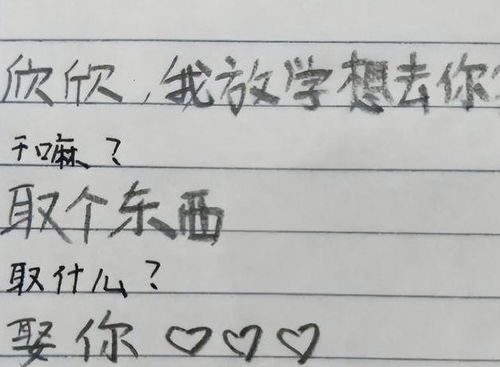 欣欣,我放学想去你
干嘛?
取个东西
取什么?
娶你 ♡♡♡